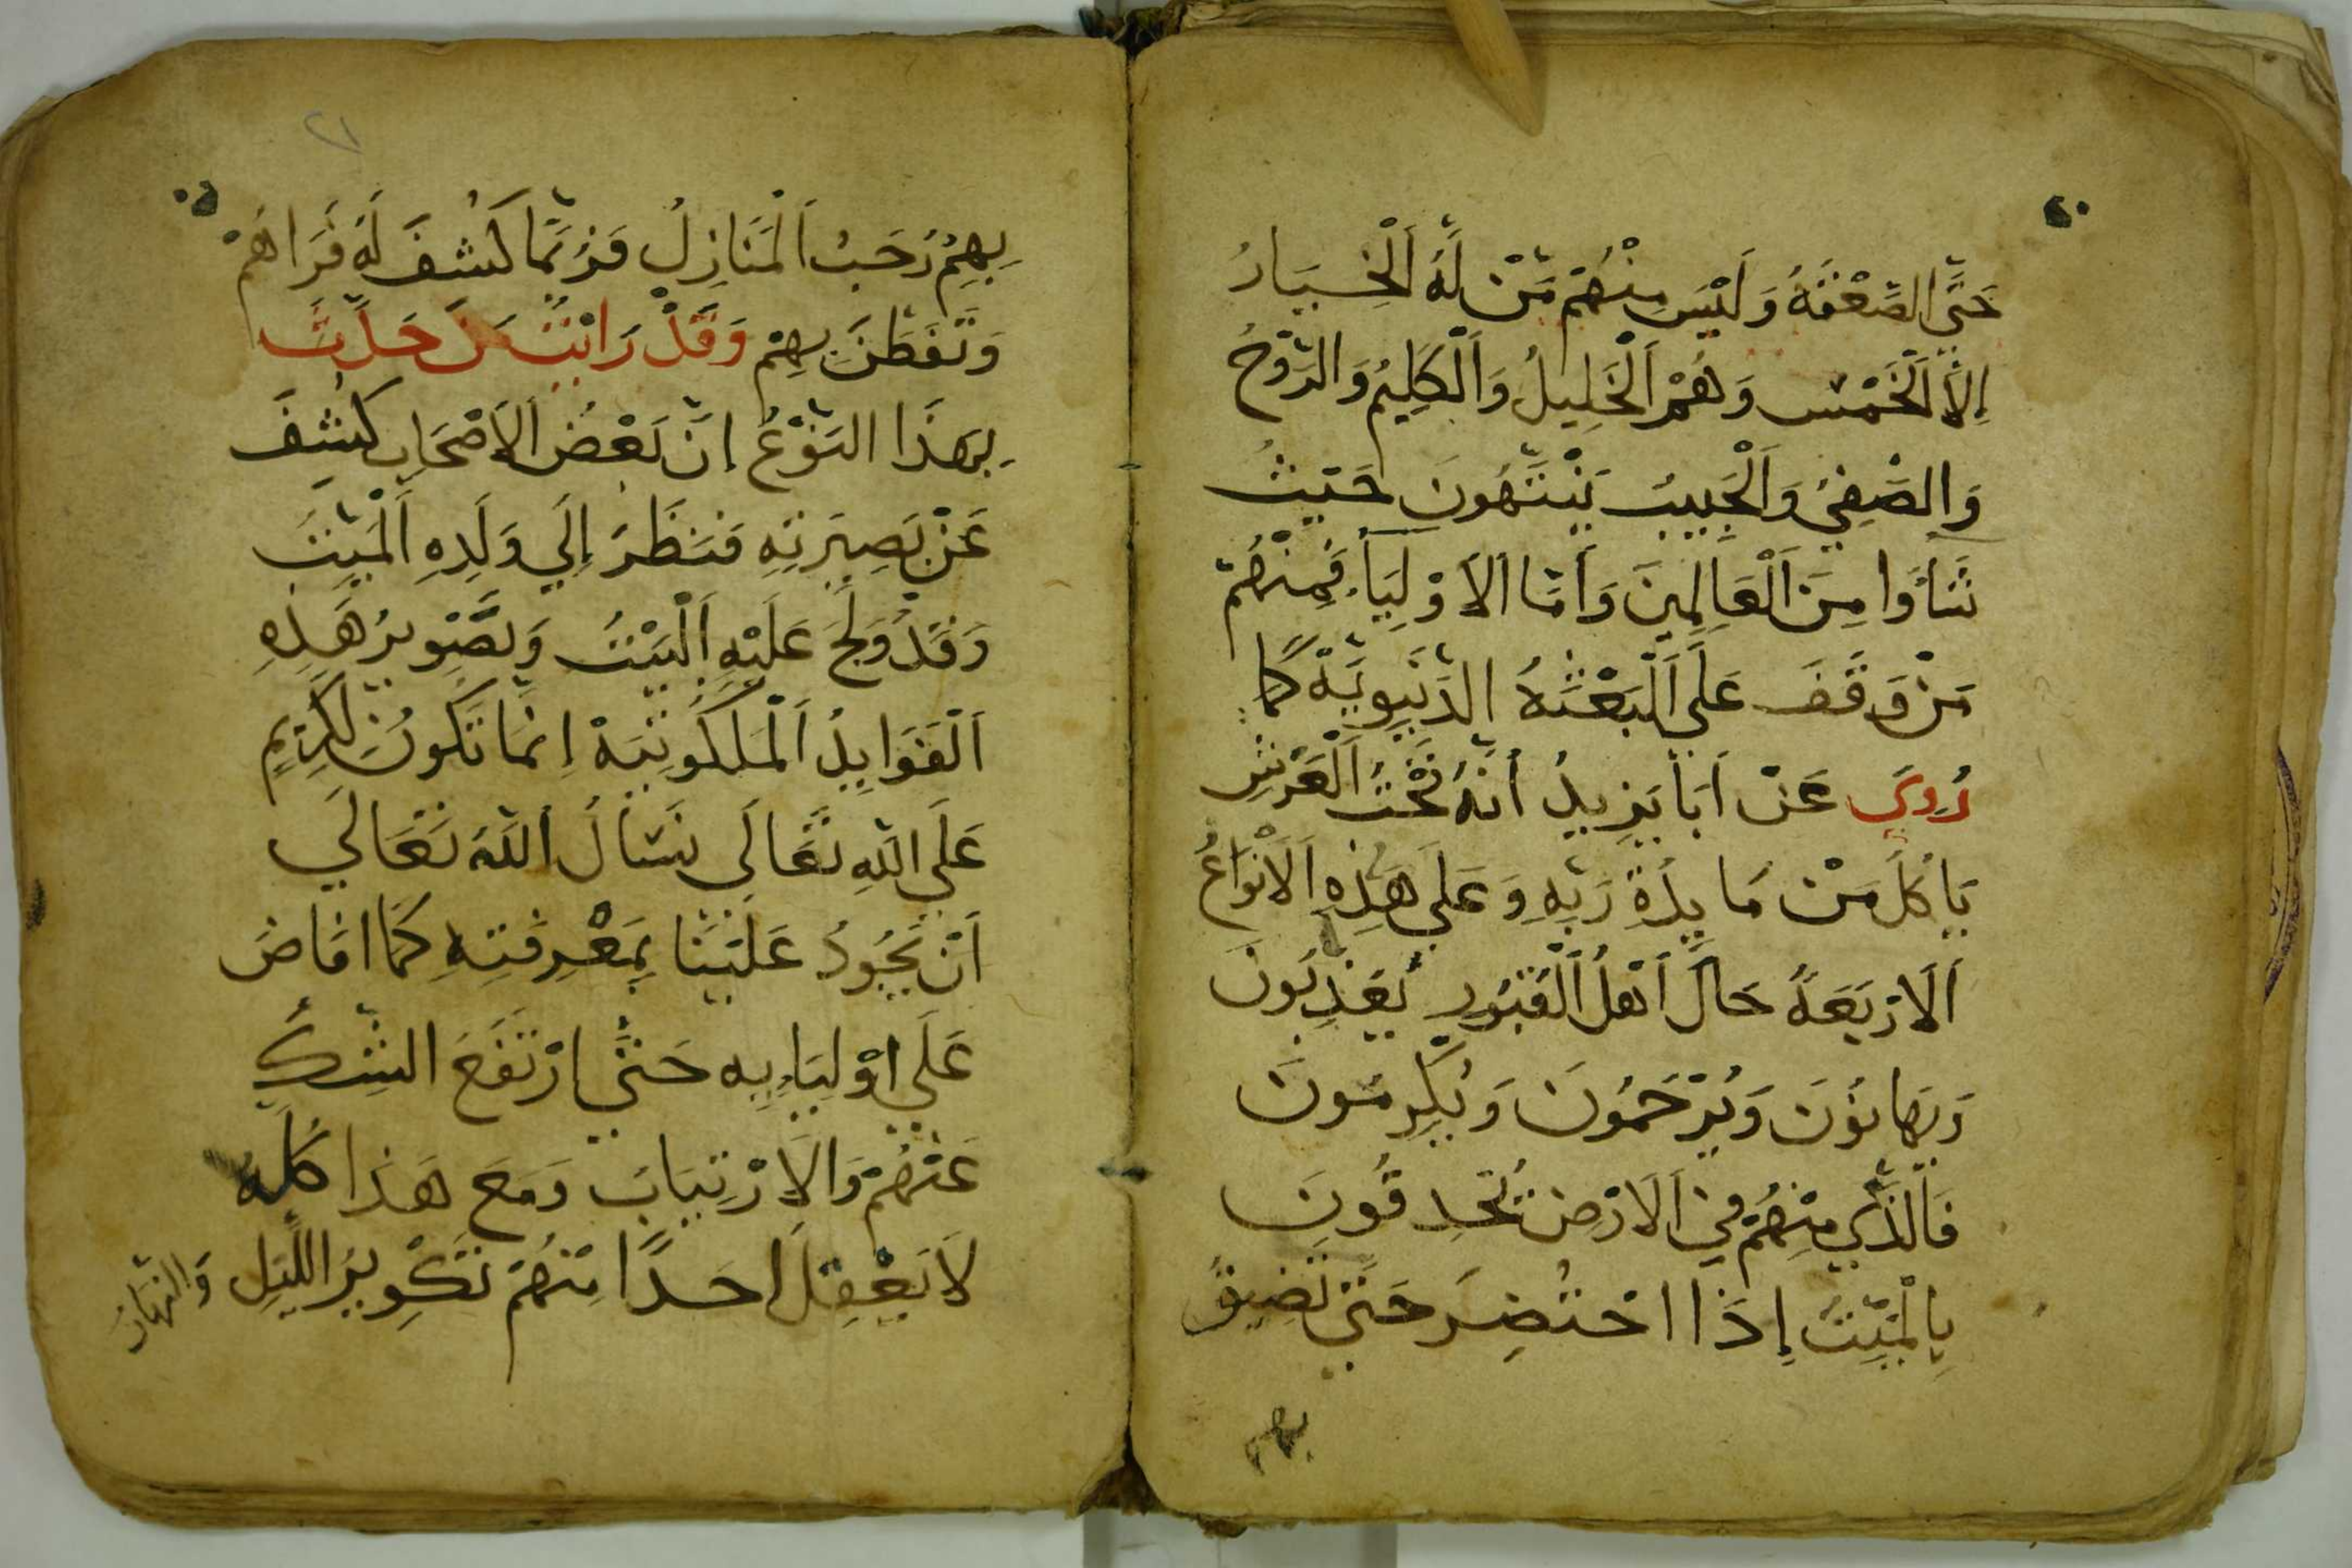 حَتَّى الصَّعْقَهُ وَلَيْسَ مِنْهُمْ مَّنْ لَّهُ اَلْخِيَارُ
اِلاَّ اَلْخَمْسِ وَهُمْ اَلْخَلِيلُ وَاَلْكَلِيمُ وَالرَّوْحُ
وَالصَّفِيُ وَاَلْحَبِيبُ يَنْتَهُونَ حَيْثُ
شَأَوا مِنَ اَلْعَالَمِينَ وَاَمَّا اَلاَوْلِيَآءِ فَمِنْهُمْ
مَنْ وَقَفَ عَلَى اَلْبَعْثَهُ الدَّنْيَوِيَّهْ كَمَا
رُوِيَ عَنْ اَبَا يَزِيدُ اَنَّهُ تَحْتَ اَلْعَرْشِ
يَاكُلَ مَنْ مَايِدَةِ رَبِّهِ وَعَلَى هَذِهِ اَلاَنْوَاعُ
اَلاَرْبَعَهُ حَالَ اَهْلُ اَلْقُبُورِ يُعَذِّبُونَ
وَيُهَانُونَ وَيُرْحَمُونَ وَيُكْرِمُونَ
فَالذَّكِي مِنْهُمْ فِي اَلاَرْضِ تُحْدِقُونَ
بِالْمَيِّتُ اِذَا احْتُضِرَ حَتَّى تَضِيقُ
بهم
٢١
بِهِمْ رَحَبُ اَلْمَنَازِلُ فَرُبَّمَا كَشَفَ لَهُ فَرَاهُمْ
وَتَفَطَّنَ بِهِمْ وَقَدْ رَايْتُ مَنْ حَدَّثَ
بِهَذَا النَّوْعُ اِنَّ بَعْضُ اَلاَصْحَابِ كُشِفَ
عَنْ بَصِيرَتِهِ فَنَظَرَ اِلَي وَلَدِهِ اَلْمَيِّتَ
وَقَدْ وَلَجَ عَلَيْهِ اَلْبَيْتُ وَتَصْوِيرُ هَذِهِ
اَلْفَوَايِدُ اَلْمَلَكُوتِيَهْ اِنَّمَا تَكُونُ لِكَرِيمٍ
عَلَى اللَّهِ تَعَالَي نَسْأَلُ اَللَّهَ تَعَالَي
اَنْ يَجُودُ عَلَيْنَا بِمَعْرِفَتِهِ كَمَا اَفَاضَ
عَلَى اَوْلِيَاءِيِه حَتَّي ارْتَفَعَ الشَّكِّ
عَنْهُمْ وَالاِرْتِيَابَ وَمَعَ هَذَا كُلِّه
لاَ يَعْقِلَ اَحَدًا مِنْهُمْ تَكْوِيرُ اللَّيْلِ وَالنَّهَارَ